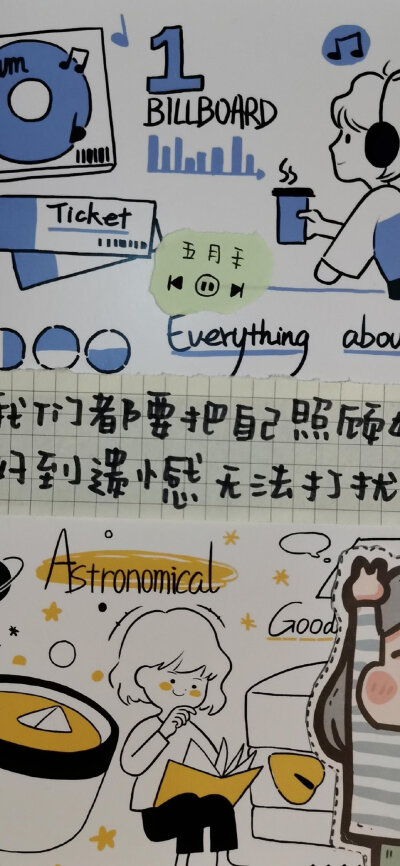 um
1
BILLBOARD
Ticket
五月天
Everything abou
我们都要把自己照顾好
好到遗憾无法打扰
Astronomical
Good